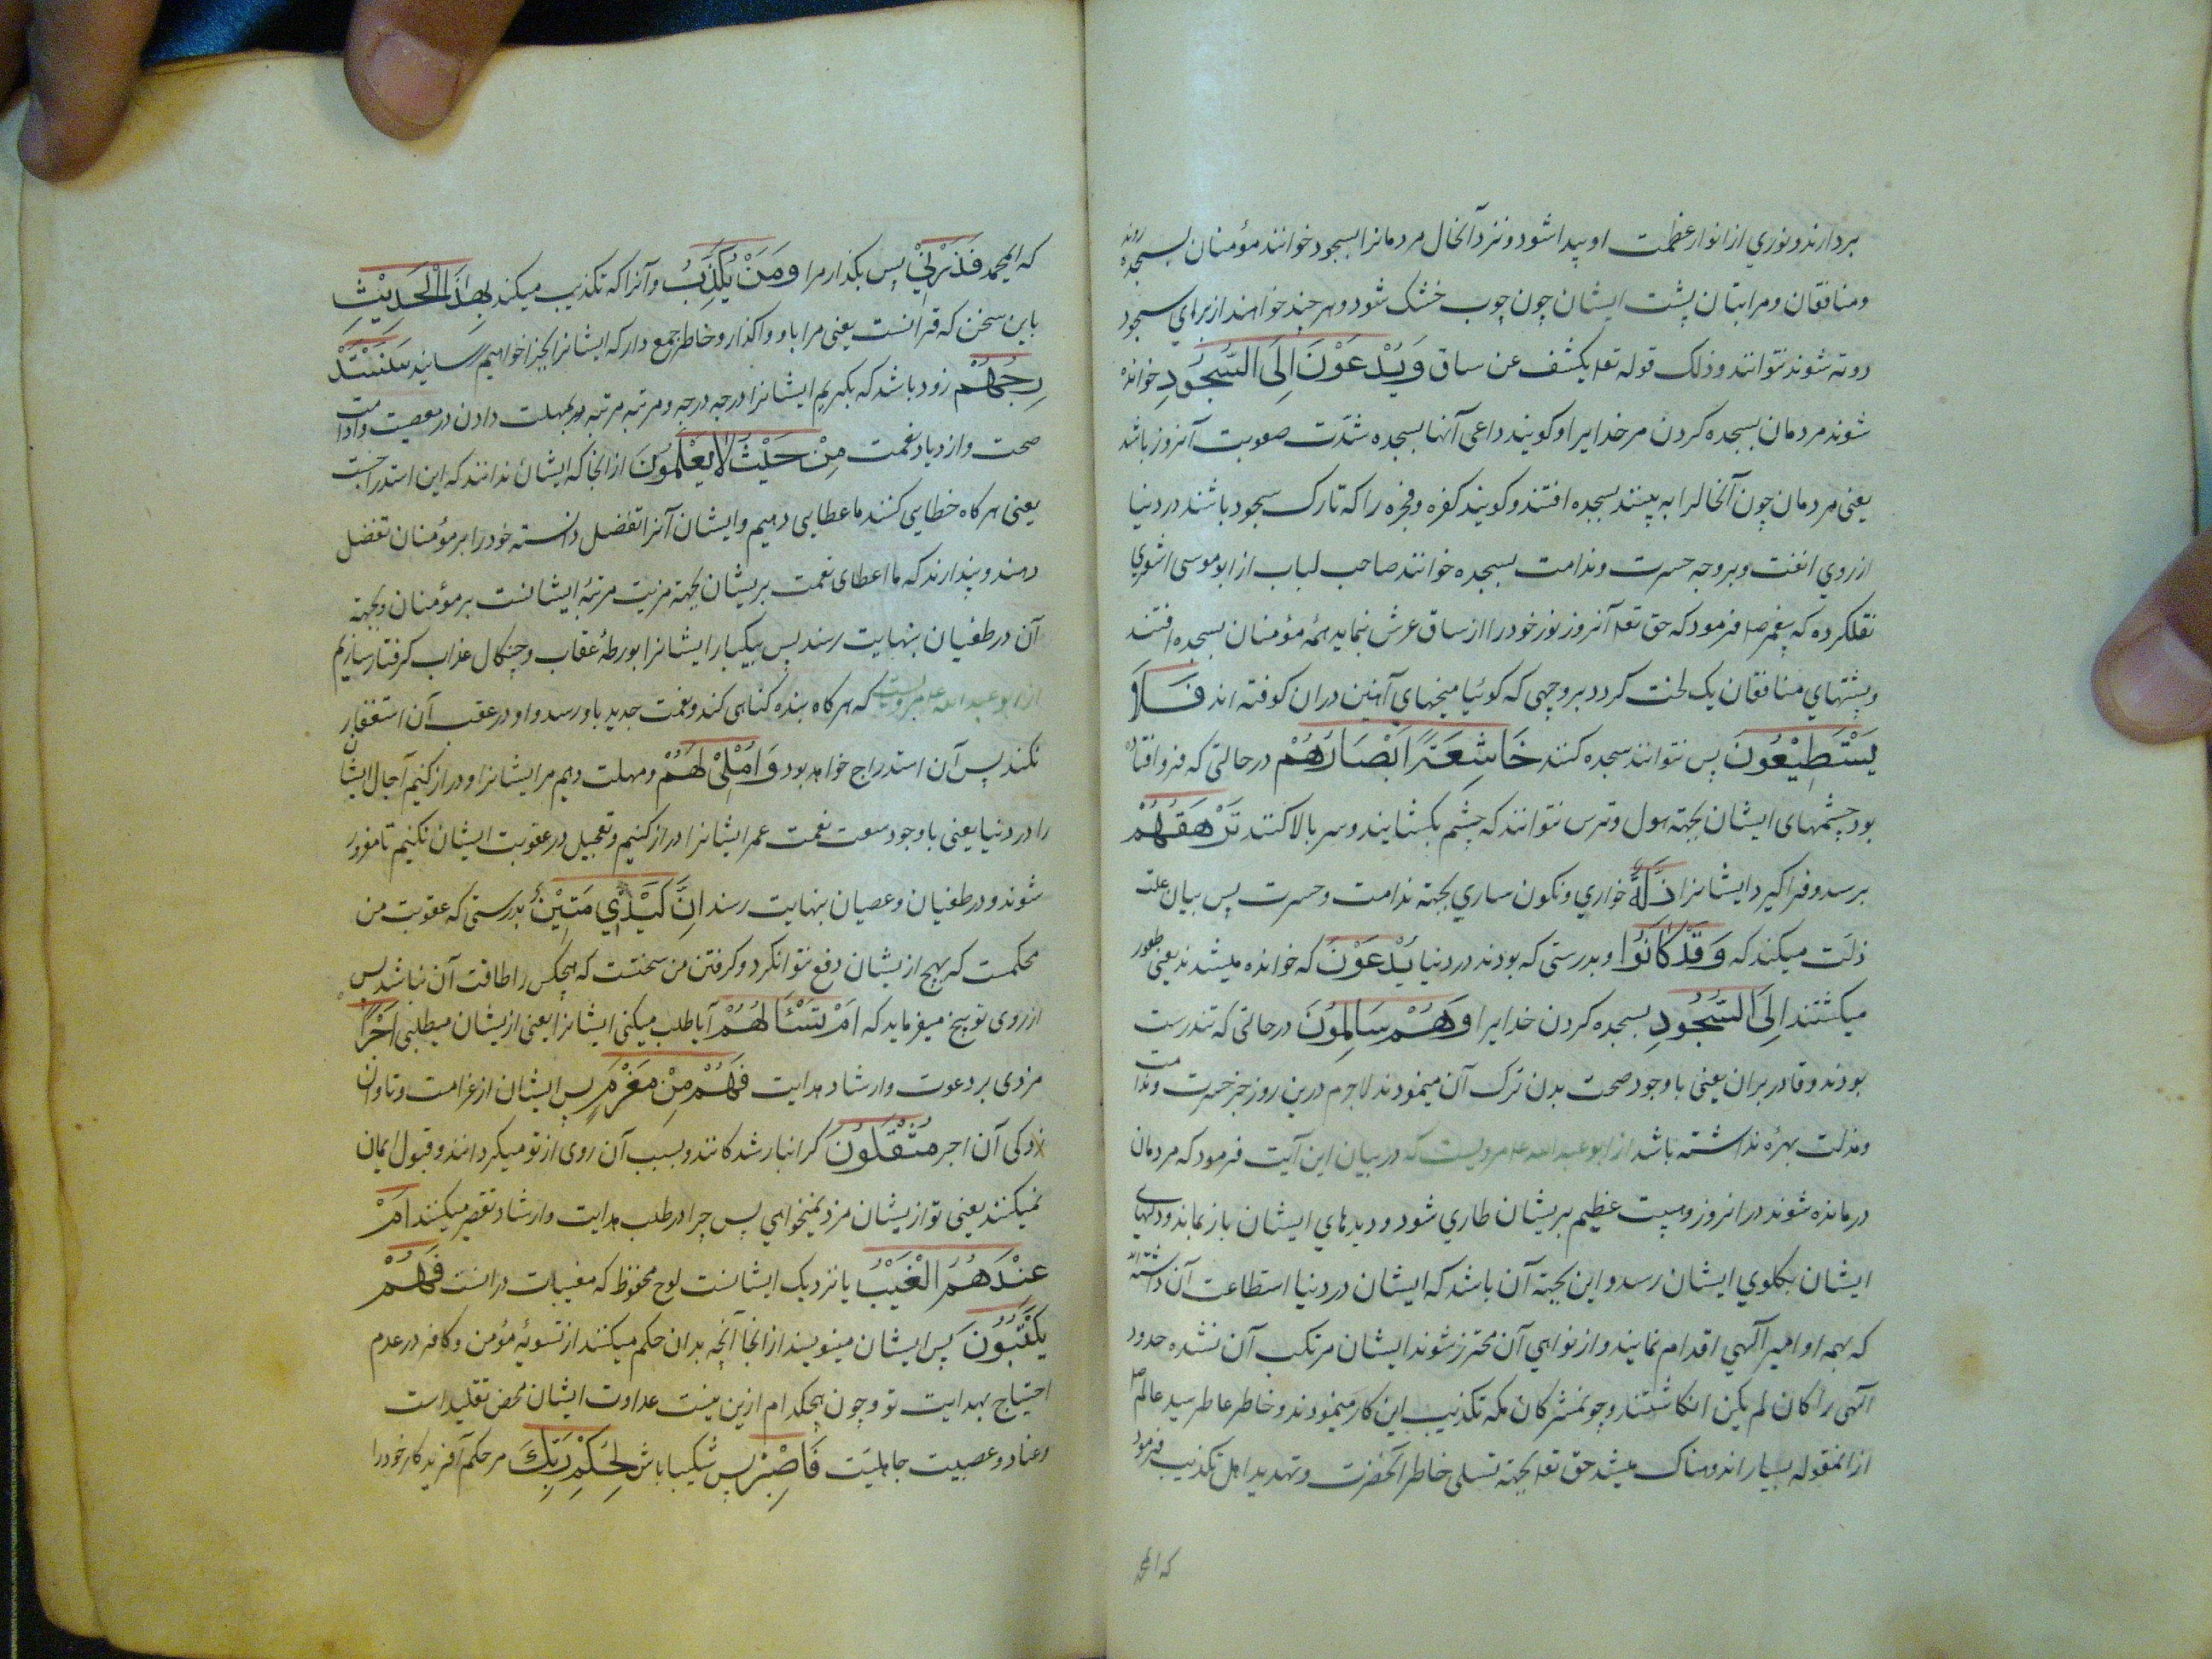 بردارند و نوري از انوار عظمت او پيدا شود و نزد آنحال مردمانرا بسجود خوانند مؤمنان بسجده روند
و منافقان و مرايتان پشت ايشان چون چوب خشک شود و هر چند خواهند از براي سجود
دوته شوند نتوانند و ذلک قوله تعه يکشف عن ساق وَيُدْعَوْنَ اِلَى السُّجُودِ خوانده
شوند مردمان بسجده کردن مر خدايرا و کويند داعى آنها بسجده شدّت صعوبت آنروز باشد
يعنى مردمان چون آنحالرا به بينند بسجده افتند و کويند کفره و فجره را که تارک سجود باشند در دنيا
از روي انفت و بر وجه حسرت و ندامت بسجده خوانند صاحب لباب از ابو موسى اشعري
نقلکرده که پيغمبر صلم فرمود که حق تعه آنروز نور خود را از ساق عرش بنمايد همه مؤمنان بسجده افتند
و پشتهاي منافقان يک لخت کردد بر وجهى که کوئيا ميخهاى آهنين دران کوفته اند فَلَا
يَسْتَطِيْعُونَ پس نتوانند سجده کنند خَاشِعَةً اَبْصَارُهُمْ در حالتى که فرو افتاده
بود چشمهاى ايشان بجهته هول و ترس نتوانند که چشم بکشايند و سر بالا کنند تَرْهَقُهُمْ
برسد و فرا کيرد ايشانرا ذِلَّةٌ خواري و نکون ساري بجهته ندامت و حسرت پس بيان علت
ذلّت ميکند که وَقَدْ كَانُوا و بدرستى که بودند در دنيا يُدْعَوْنَ که خوانده ميشدند يعنى مامور
ميکشتند اِلَى السُّجُودِ بسجده کردن خدايرا وَهُمْ سَالِمُونَ در حالتى که تندرست
بودند و قادر بران يعنى با وجود صحت بدن ترک آن مينمودند لاجرم درين روز جز حسرت و ندامت
و مذلت بهره نداشته باشد از ابو عبد الله علم مرويست که در بيان اين آيت فرمود که مردمان
درمانده شوند در انروز و هيبت عظيم بريشان طاري شود و ديدهاي ايشان باز بماند و دلهاي
ايشان بکلوي ايشان رسد و اين بجهته آن باشد که ايشان در دنيا استطاعت آن داشتند
که بهمه اوامير آلهي اقدام نمايند و از نواهي آن محترز شوند ايشان مرتکب آن نشده حدود
آلهى را کان لم يکن انکاشتند و چون مشرکان مکه تکذيب اين کار مينمودند و خاطر عاطر سيد عالم صلم
از انمقوله بسيار اندوهناک ميشد حق تعه بجهته تسلى خاطر آنحضرت و تهديد اهل تکذيب فرمود
که ايمحمد
که ايمحمد فَذَرْنِيْ پس بکذار مرا وَمَنْ يُكَذِّبُ و آنرا که تکذيب ميکند بِهٰذَا الْحَدِيْثِ
باين سخن که قرانست يعنى مرا باو واکذار و خاطر جمع دار که ايشانرا بجزا خواهيم رسانيد سَنَسْتَدْ
رِجُهُمْ زود باشد که بکيريم ايشانرا درجه درجه و مرتبه مرتبه بمهلت دادن در معصيت و ادامت
صحت و ازدياد نعمت مِنْ حَيْثُ لَا يَعْلَمُونَ از انجا که ايشان ندانند که اين استدراجست
يعنى هر کاه خطايى کنند ما عطايى دهيم و ايشان آنرا تفضل دانسته خود را بر مؤمنان تفضل
دهند و پندارند که ما اعطاى نعمت بريشان بجهته مزيت مرتبه ايشانست بر مؤمنان و بجهته
آن در طغيان بنهايت رسند پس بيکبار ايشانرا بورطه عقاب و چنکال عذاب کرفتار سازيم
از ابو عبد الله علم مرويست که هر کاه بنده کناهى کند و نعمت جديد باو رسد و او در عقب آن استغفار
نکند پس آن استدراج خواهد بود وَاُمْلِىْ لَهُمْ و مهلت دهيم مر ايشانرا و دراز کنيم آجال ايشان
را در دنيا يعنى با وجود سعت نعمت عمر ايشانرا دراز کنيم و تعجيل در عقوبت ايشان نکنيم تا مغرور
شوند و در طغيان و عصيان بنهايت رسند اِنَّ كَيْدِيْ مَتِيْنٌ بدرستى که عقوبت من
محکمست که بهيج ازيشان دفع نتوانکرد و کرفتن من سختست که هيچکس را طاقت آن نباشد پس
از روى توبيخ ميفرمايد که اَمْ تَسْئَلُهُمْ آيا طلب ميکنى ايشانرا يعنى ازيشان ميطلبى اَجْرًا
مزدى بر دعوت و ارشاد هدايت فَهُمْ مِنْ مَغْرَمٍ پس ايشان از غرامت و تاوان
زدکى آن اجر مُثْقَلُونَ کرانبار شدکانند و بسبب آن روى از تو ميکردانند و قبول ايمان
نميکنند يعنى تو ازيشان مزد نميخواهي پس چرا در طلب هدايت و ارشاد تقصير ميکنند اَمْ
عِنْدَهُمُ الْغَيْبُ يا نزديک ايشانست لوح محفوظ که مغيبات درانست فَهُمْ
يَكْتُبُونَ پس ايشان مينويسند از انجا آنچه بدان حکم ميکنند از تسويه مؤمن و کافر در عدم
احتياج بهدايت تو و چون هيچکدام ازين نيست عداوت ايشان محض تقليد است
و عناد و عصبيت جاهليّت فَاصْبِرْ پس شکيبا باش لِحُكْمِ رَبِّكَ مر حکم آفريدکار خود را